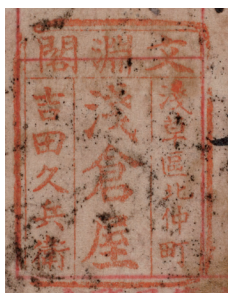 文淵閣
浅草區北仲町
浅倉屋
吉田久兵衛